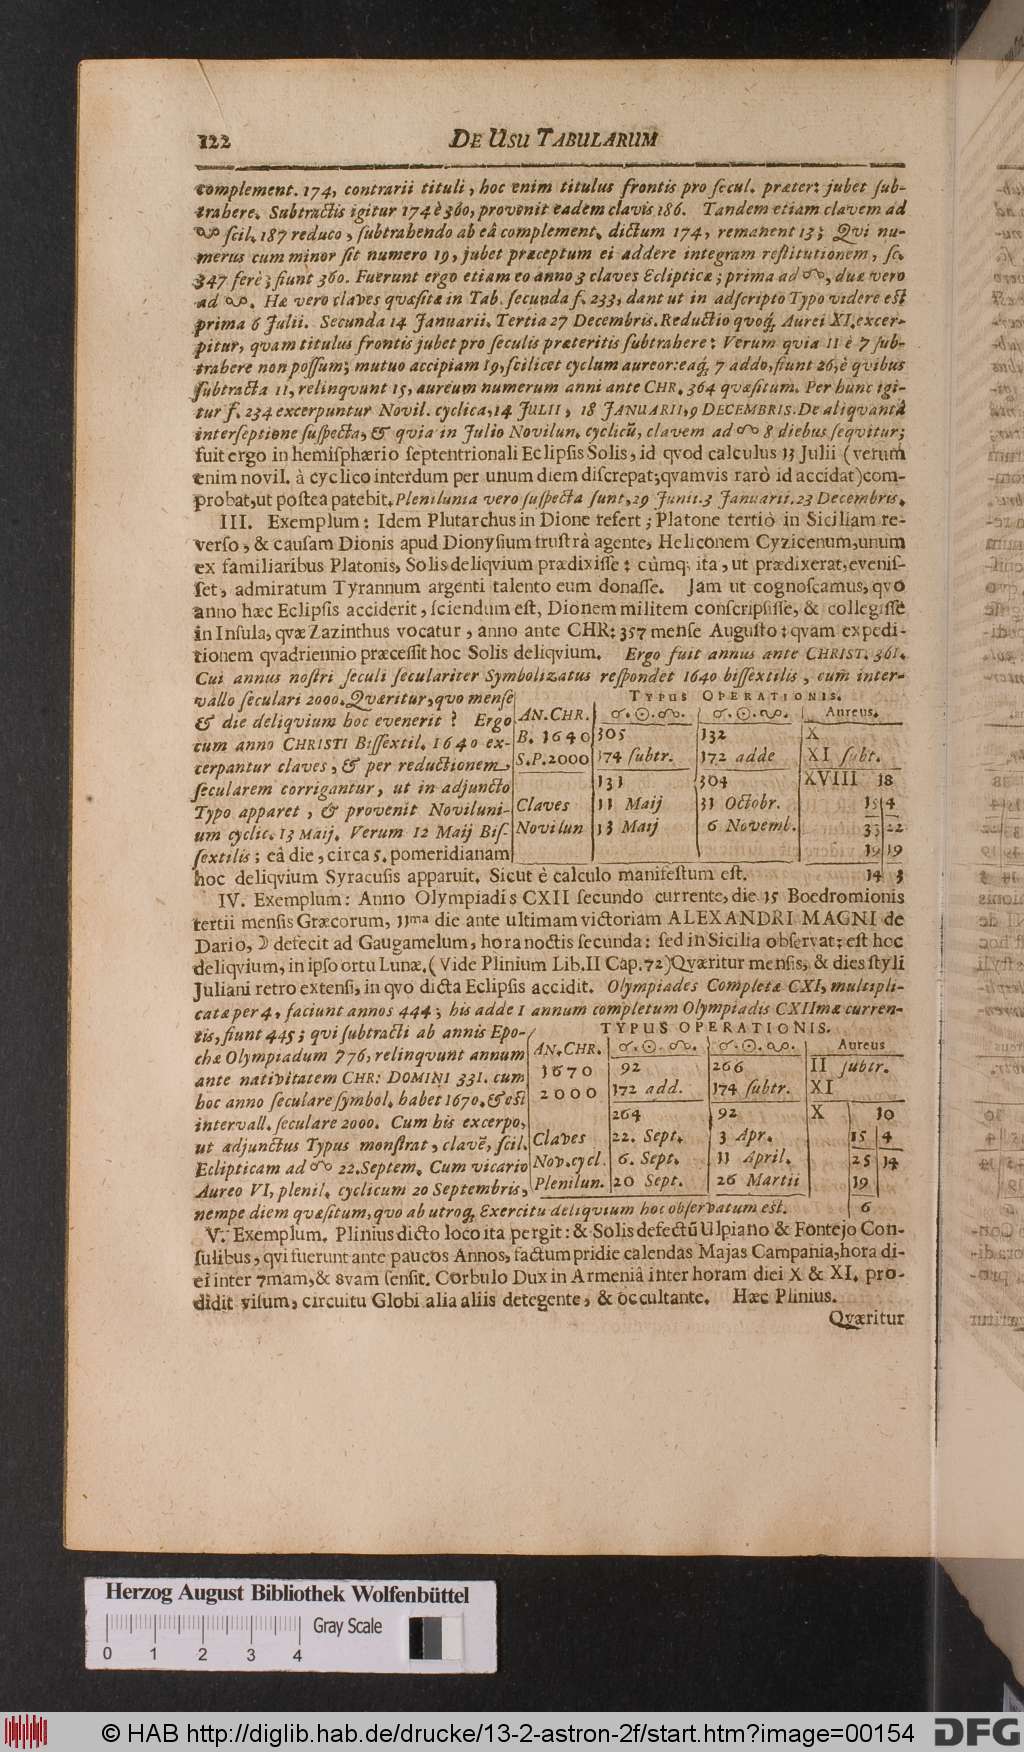 122 DE USU TABULARUM
complement. 174, contrarii tituli, hoc enim titulus frontis pro secul. præter: jubet sub-
trahere. Subtractis igitur 174 è 360, provenit eadem clavis 186. Tandem etiam clavem ad
☋ scil. 187 reduco, subtrahendo ab eâ complement. dictum 174, remanent 13; Qvi nu-
merus cum minor sit numero 19, jubet præceptum ei addere integram restitutionem, sc.
347 ferè; fiunt 360. Fuerunt ergo etiam eo anno 3 claves Eclipticæ; prima ad ☊, duæ vero
ad ☋. Hæ vero claves quæsitæ in Tab. secunda f. 233, dant ut in adscripto Typo videre est
prima 6 Julii. Secunda 14 Januarii. Tertia 27 Decembris. Reductio quoq; Aurei XI. excer-
pitur, quam titulus frontis jubet pro seculis præteritis subtrahere: Verum quia 11 è 7 sub-
trahere non possum; mutuo accipiam 19, scilicet cyclum aureor: eaq; 7 addo, fiunt 26, è quibus
subtracta 11, relinqvunt 15, aureum numerum anni ante CHR. 364 quæsitum. Per hunc igi-
tur f. 234 excerpuntur Novil. cyclica, 14 JULII, 18 JANUARII, 9 DECEMBRIS. De aliquantâ
interseptione suspecta, & quia in Julio Novilun. cyclicũ, clavem ad ☊ 8 diebus seqvitur;
fuit ergo in hemisphærio septentrionali Eclipsis Solis, id qvod calculus 13 Julii (verum
enim novil. à cyclico interdum per unum diem discrepat; qvamvis rarò id accidat) com-
probat, ut postea patebit. Plenilunia vero suspecta sunt, 29 Junii. 3 Januarii. 23 Decembris.
III. Exemplum: Idem Plutarchus in Dione refert; Platone tertiò in Siciliam re-
verso, & causam Dionis apud Dionysium frustrà agente, Heliconem Cyzicenum, unum
ex familiaribus Platonis, Solis deliqvium prædixisse: cùmq; ita, ut prædixerat, evenis-
set, admiratum Tyrannum argenti talento eum donasse. Jam ut cognoscamus, qvo
anno hæc Eclipsis acciderit, sciendum est, Dionem militem conscripsisse, & collegisse
in Insula, qvæ Zazinthus vocatur, anno ante CHR: 357 mense Augusto: qvam expedi-
tionem qvadriennio præcessit hoc Solis deliqvium. Ergo fuit annus ante CHRIST. 361.
Cui annus nostri seculi seculariter Symbolizatus respondet 1640 bissextilis, cum inter-
vallo seculari 2000. Quæritur, quo mense
& die deliqvium hoc evenerit? Ergo
cum anno CHRISTI Bissextil. 1640 ex-
cerpantur claves, & per reductionem
secularem corrigantur, ut in adjuncto
Typo apparet, & provenit Noviluni-
um cyclic. 13 MAIJ. Verum 12 Maij Bis-
sextilis; eâ die, circa 5. pomeridianam
TYPUS OPERATIONIS.
AN. CHR. ☌.☉.☊. ☌.☉.☋. Aureus.
B. 1640 305 132 X
S.P. 2000 174 subtr. 172 adde XI subt.
131 304 XVIII 18
Claves 11 Maij 31 Octobr. 15 4
Novilun 13 Maij 6 Novemb. 33 22
19 19
hoc deliqvium Syracusis apparuit. Sicut è calculo manifestum est. 14 3
IV. Exemplum: Anno Olympiadis CXII secundo currente, die 15 Boedromionis
tertii mensis Græcorum, 11ma die ante ultimam victoriam ALEXANDRI MAGNI de
Dario, ☽ defecit ad Gaugamelum, hora noctis secunda: sed in Sicilia observat: est hoc
deliqvium, in ipso ortu Lunæ. (Vide Plinium Lib. II Cap. 72) Qværitur mensis, & dies styli
Juliani retro extensi, in qvo dicta Eclipsis accidit. Olympiades Completæ CXI, multipli-
catæ per 4, faciunt annos 444; his adde 1 annum completum Olympiadis CXIImæ curren-
tis, fiunt 445; qvi subtracti ab annis Epo-
chæ Olympiadum 776, relinqvunt annum
ante nativitatem CHR: DOMINI 331. cum
hoc anno seculare symbol. habet 1670. & est
intervall. seculare 2000. Cum his excerpo,
ut adjunctus Typus monstrat, clavẽ, scil.
Eclipticam ad ☊ 22. Septem. Cum vicario
Aureo VI, plenil. cyclicum 20 Septembris,
TYPUS OPERATIONIS.
AN. CHR. ☌.☉.☊. ☌.☉.☋. Aureus
1670 92 266 II subtr.
2000 172 add. 174 subtr. XI
264 92 X 10
Claves 22. Sept. 3 Apr. 15 4
Nov. cycl. 6. Sept. 11 April. 25 14
Plenilun. 20 Sept. 26 Martii 19
nempe diem quæsitum, quo ab utroq; Exercitu deliqvium hoc observatum est. 6
V. Exemplum. Plinius dicto loco ita pergit: & Solis defectũ Ulpiano & Fontejo Con-
sulibus, qvi fuerunt ante paucos Annos, factum pridie calendas Majas Campania, hora di-
ei inter 7mam, & 8vam sensit. Corbulo Dux in Armeniâ inter horam diei X & XI. pro-
didit visum, circuitu Globi alia aliis detegente, & occultante. Hæc Plinius.
Qværitur
Herzog August Bibliothek Wolfenbüttel
Gray Scale
0 1 2 3 4
© HAB http://diglib.hab.de/drucke/13-2-astron-2f/start.htm?image=00154 DFG